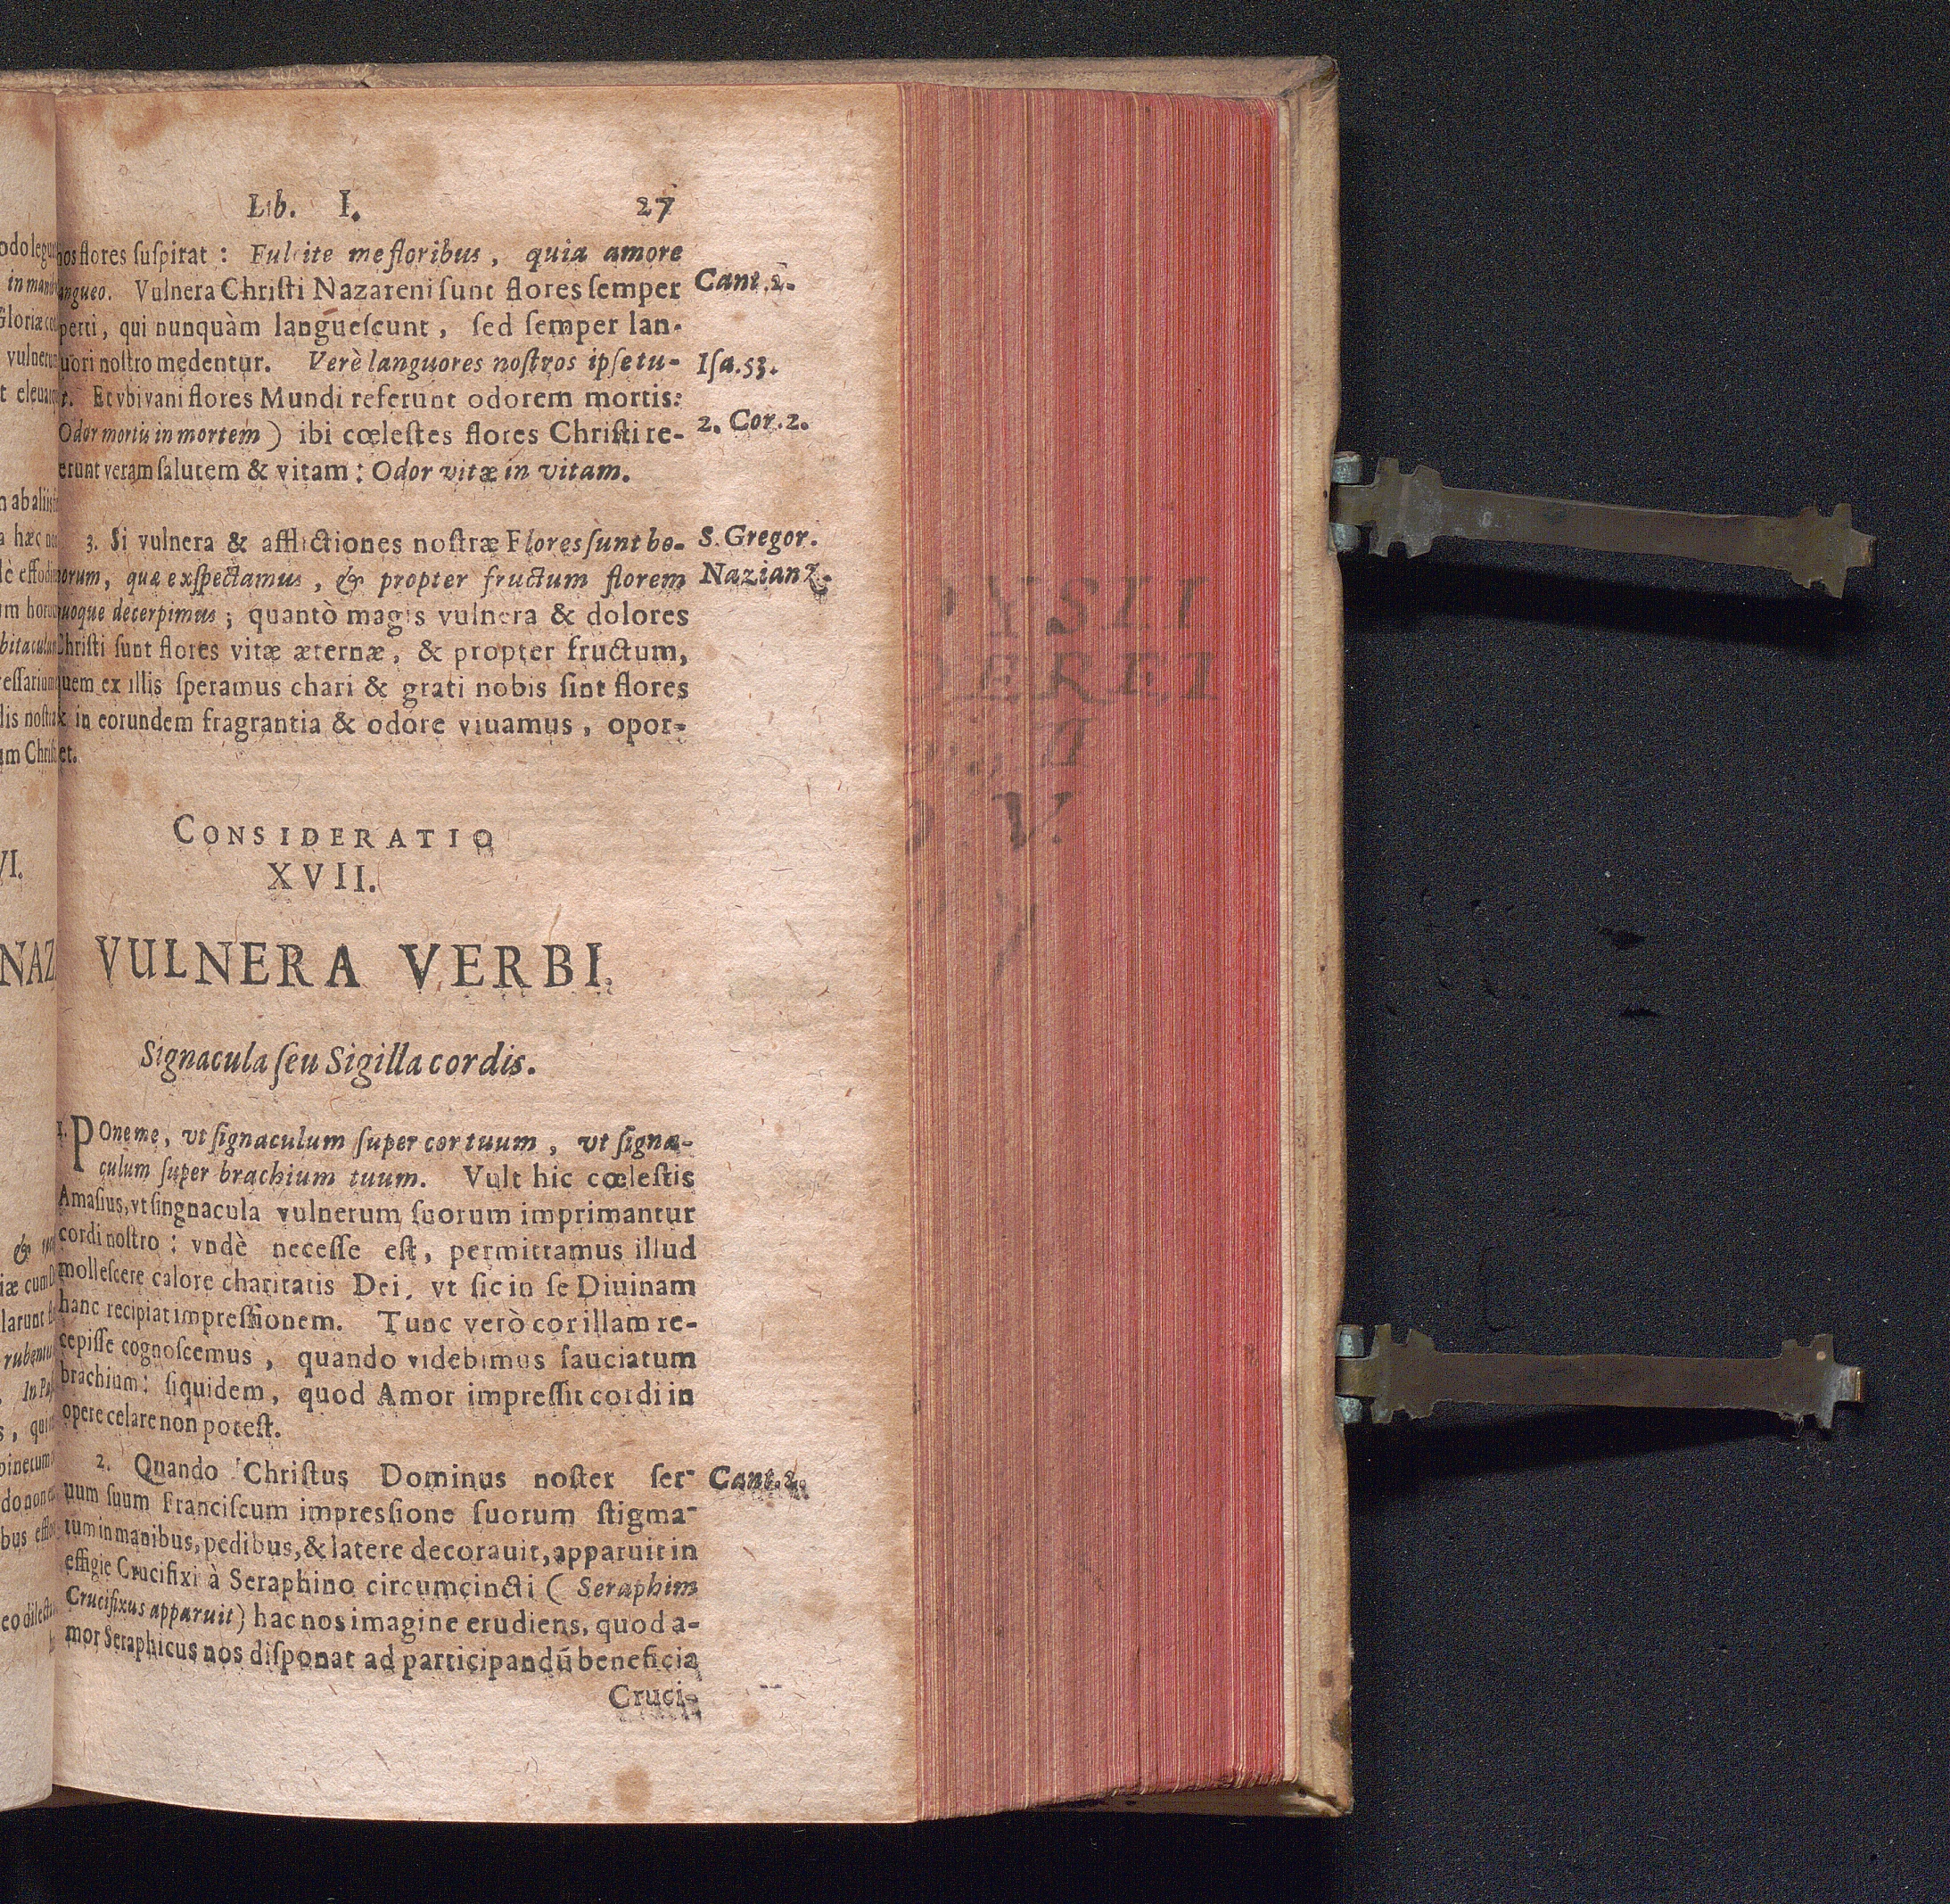 Lib. I. 27
nos flores ſuſpirat : Fulcite me floribus, quia amore
langueo. Vulnera Chriſti Nazareni ſunt flores ſemper
Cant. 2.
perti, qui nunquàm langueſcunt, ſed ſemper lan-
uori noſtro medentur. Verè languores noſtros ipſe tu-
Iſa. 53.
t. Et vbi vani flores Mundi referunt odorem mortis:
Odor mortis in mortem) ibi cœleſtes flores Chriſti re-
2. Cor. 2.
erunt veram ſalutem & vitam : Odor vitæ in vitam.
3. Si vulnera & afflictiones noſtræ Flores ſunt bo-
S. Gregor.
norum, quæ exſpectamus, & propter fructum florem
Nazianz.
quoque decerpimus ; quantò magis vulnera & dolores
Chriſti ſunt flores vitæ æternæ, & propter fructum,
quem ex illis ſperamus chari & grati nobis ſint flores
& in eorundem fragrantia & odore viuamus, opor-
et.
CONSIDERATIO
XVII.
VULNERA VERBI.
Signacula ſeu Sigilla cordis.
1. POne me, vt ſignaculum ſuper cor tuum, vt ſigna-
culum ſuper brachium tuum. Vult hic cœleſtis
Amaſius, vt ſingnacula vulnerum ſuorum imprimantur
cordi noſtro : vndè neceſſe eſt, permittamus illud
molleſcere calore charitatis Dei, vt ſic in ſe Diuinam
hanc recipiat impreſſionem. Tunc verò cor illam re-
cepiſſe cognoſcemus, quando videbimus ſauciatum
brachium : ſiquidem, quod Amor impreſſit cordi in
opere celare non poteſt.
2. Quando Chriſtus Dominus noſter ſer-
Cant. 2.
uum ſuum Franciſcum impressione ſuorum ſtigma-
tum in manibus, pedibus, & latere decorauit, apparuit in
effigie Crucifixi à Seraphino circumcincti ( Seraphim
Crucifixus apparuit) hac nos imagine erudiens, quod a-
mor Seraphicus nos diſponat ad participandũ beneficia
Cruci-